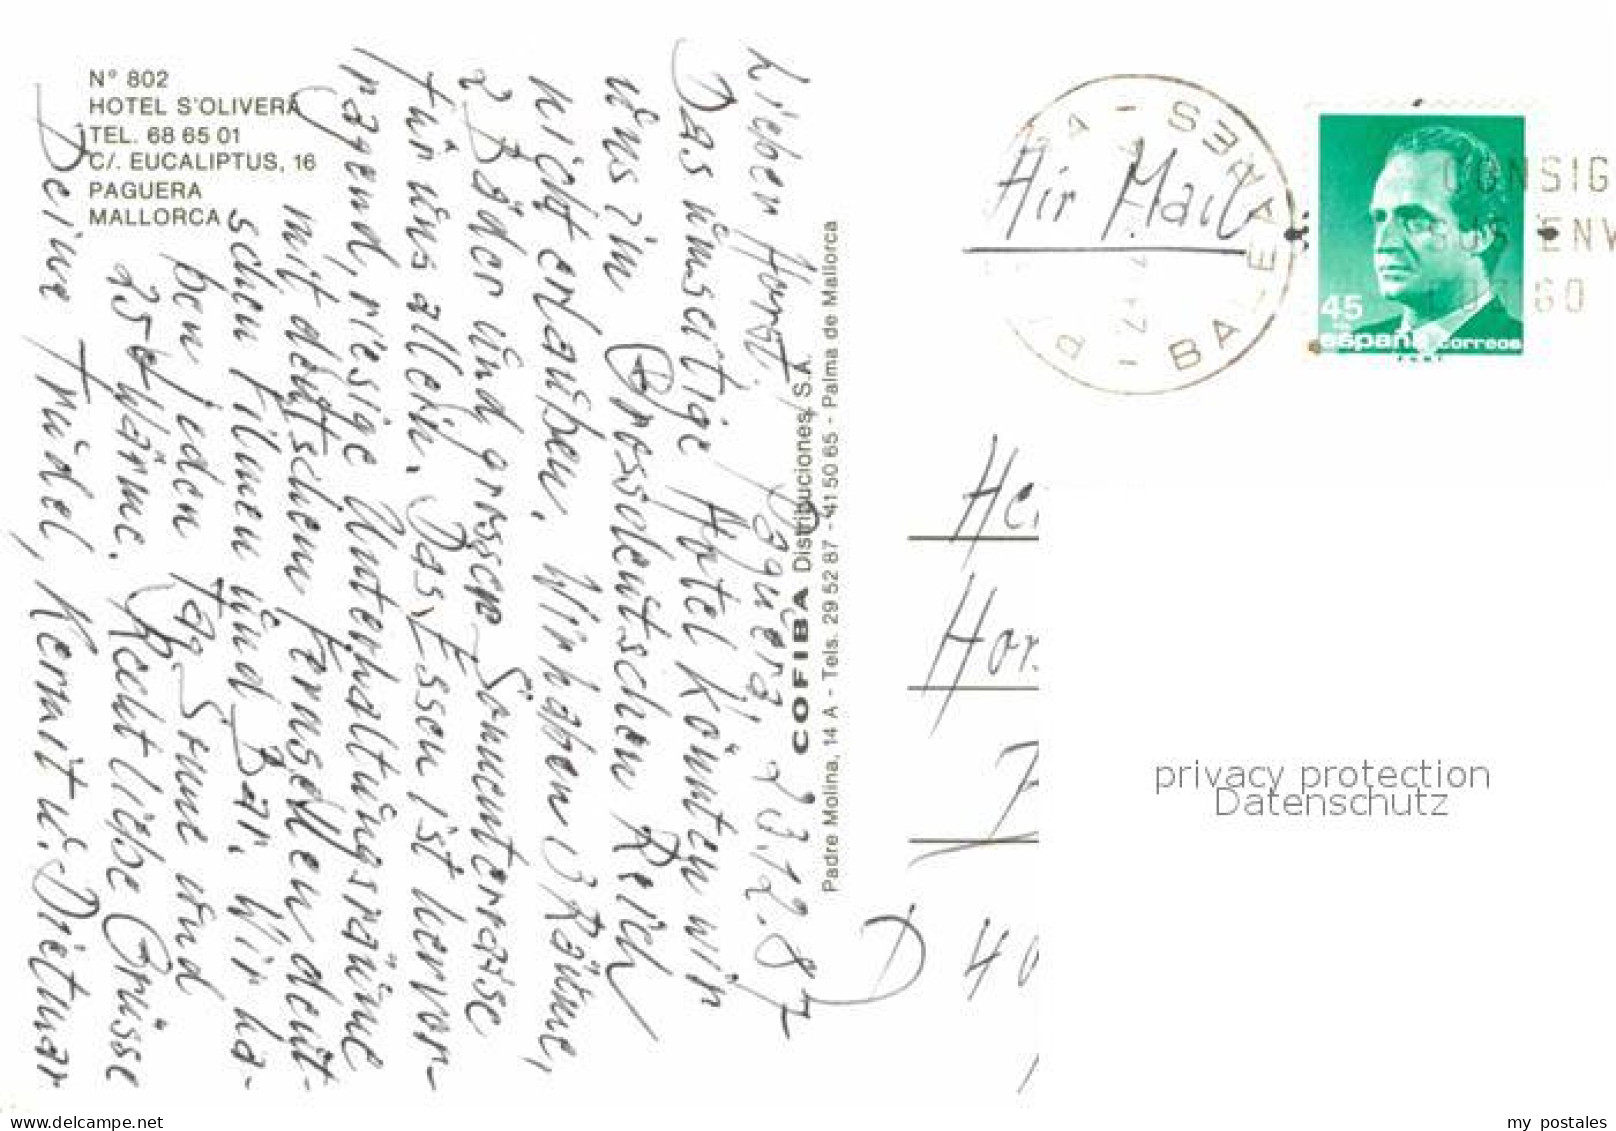 Nº 802
HOTEL S'OLIVERA
TEL. 68 65 01
C/. EUCALIPTUS, 16
PAGUERA
MALLORCA
Lieber Horst, Paguera, 23.12.87
Das unsertige Hotel könnten wir
uns im Grossdeutschen Reich
nicht erlauben. Wir haben 3 Räume,
2 Bäder und grosse Sonnenterrasse
für uns allein. Das Essen ist hervor-
ragend, riesige Unterhaltungsräume
mit deutschem Fernsehen, deut-
schen Filmen und Bar. Wir ha-
ben jeden Tag Sonne und
25° Wärme. Recht liebe Grüsse
Deine Trudel, Kermit u. Dietmar
COFIBA Distribuciones, S.A.
Padre Molina, 14 A - Tels. 29 52 87 - 41 50 65 - Palma de Mallorca
Air Mail
BALEARES
CONSIG
SUS ENV
45
España correos
Hor
D 40
privacy protection
Datenschutz
www.delcampe.net
my_postales